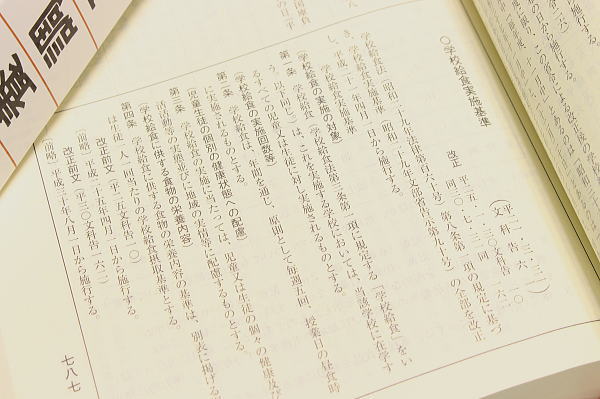 ○学校給食実施基準
(平二一・三・三一
文科告六一)
改正 平二五・一・三〇文科告一〇
同三〇・七・三一同一六二
学校給食法(昭和二十九年法律第百六十号)第八条第一項の規定に基づ
き、学校給食実施基準(昭和二十九年文部省告示第九十号)の全部を改正
し、平成二十一年四月一日から施行する。
学校給食実施基準
(学校給食の実施の対象)
第一条 学校給食(学校給食法第三条第一項に規定する「学校給食」をい
う。以下同じ。)は、これを実施する学校においては、当該学校に在学す
るすべての児童又は生徒に対し実施されるものとする。
(学校給食の実施回数等)
第二条 学校給食は、年間を通じ、原則として毎週五回、授業日の昼食時
に実施されるものとする。
(児童生徒の個別の健康状態への配慮)
第三条 学校給食の実施に当たっては、児童又は生徒の個々の健康及び
活活動等の実態並びに地域の実情等に配慮するものとする。
(学校給食に供する食物の栄養内容)
第四条 学校給食に供する食物の栄養内容の基準は、別表に掲げる
は生徒一人一回当たりの学校給食摂取基準とする。
改正前文(平二五文科告一〇)
(前略)平成二十五年四月一日から施行する。
改正前文(平三〇文科告一六二)
(前略)平成三十年八月一日から施行する。
七八七